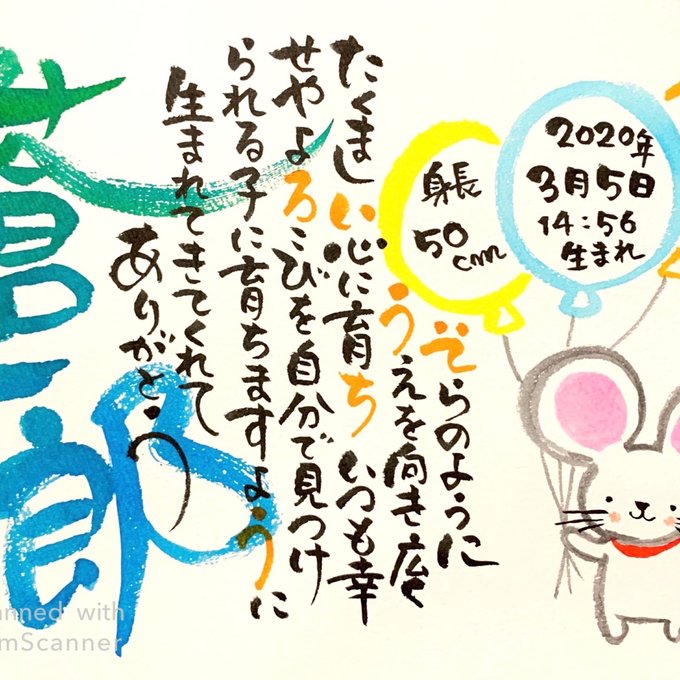 2020年
3月5日
14:56
生まれ
身長
50cm
そらのように
うえを向き広く
たくましい心に育ちいつも幸
せやよろこびを自分で見つけ
られる子に育ちますように
生まれてきてくれて
ありがとう
蒼一郎
anned with
mScanner